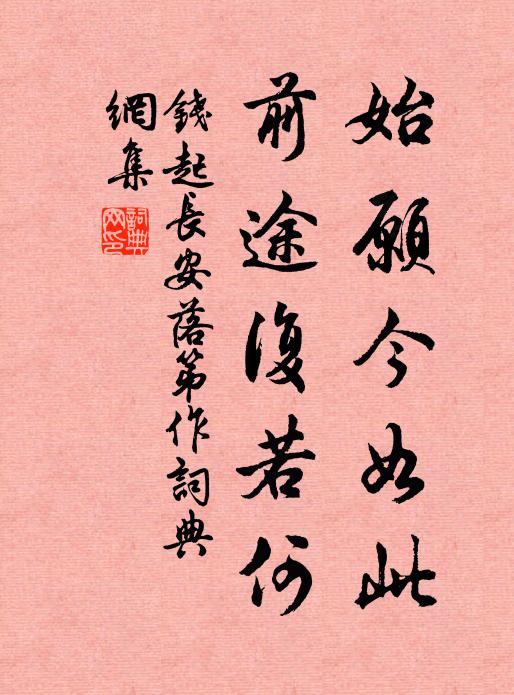 始願今如此
前途復若何
錢起長安落第作詞典
網集
詞典
网印